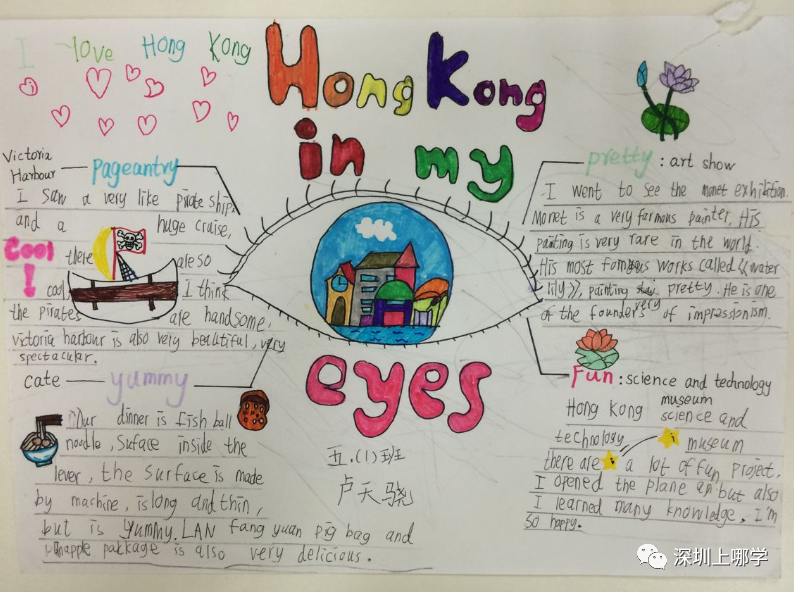 I love Hong Kong
Hong Kong
in my
eyes
Victoria
Harbour
pageantry
I saw a very like pirate ship,
and a huge cruise,
Cool
!
there are so
cool I think
the pirates are handsome,
victoria harbour is also very beautiful, very
spectacular.
cate
yummy
Our dinner is fish ball
noodle, Suface inside the
lever, the surface is made
by machine, is long and thin,
but is yummy. LAN fang yuan pig bag and
pakkage is also very delicious.
五.(1)班
卢天骁
pretty : art show
I went to see the monet exhibition.
Monet is a very farmous painter. His
painting is very rare in the world.
His most works called《water
lily》, painting very pretty. He is one
of the founders of impressionism.
Fun : science and technology
museum
Hong Kong science and
technology museum
there are a lot of fun project.
I opened the plane but also
I learned many knowledge. I'm
so happy.
深圳上哪学